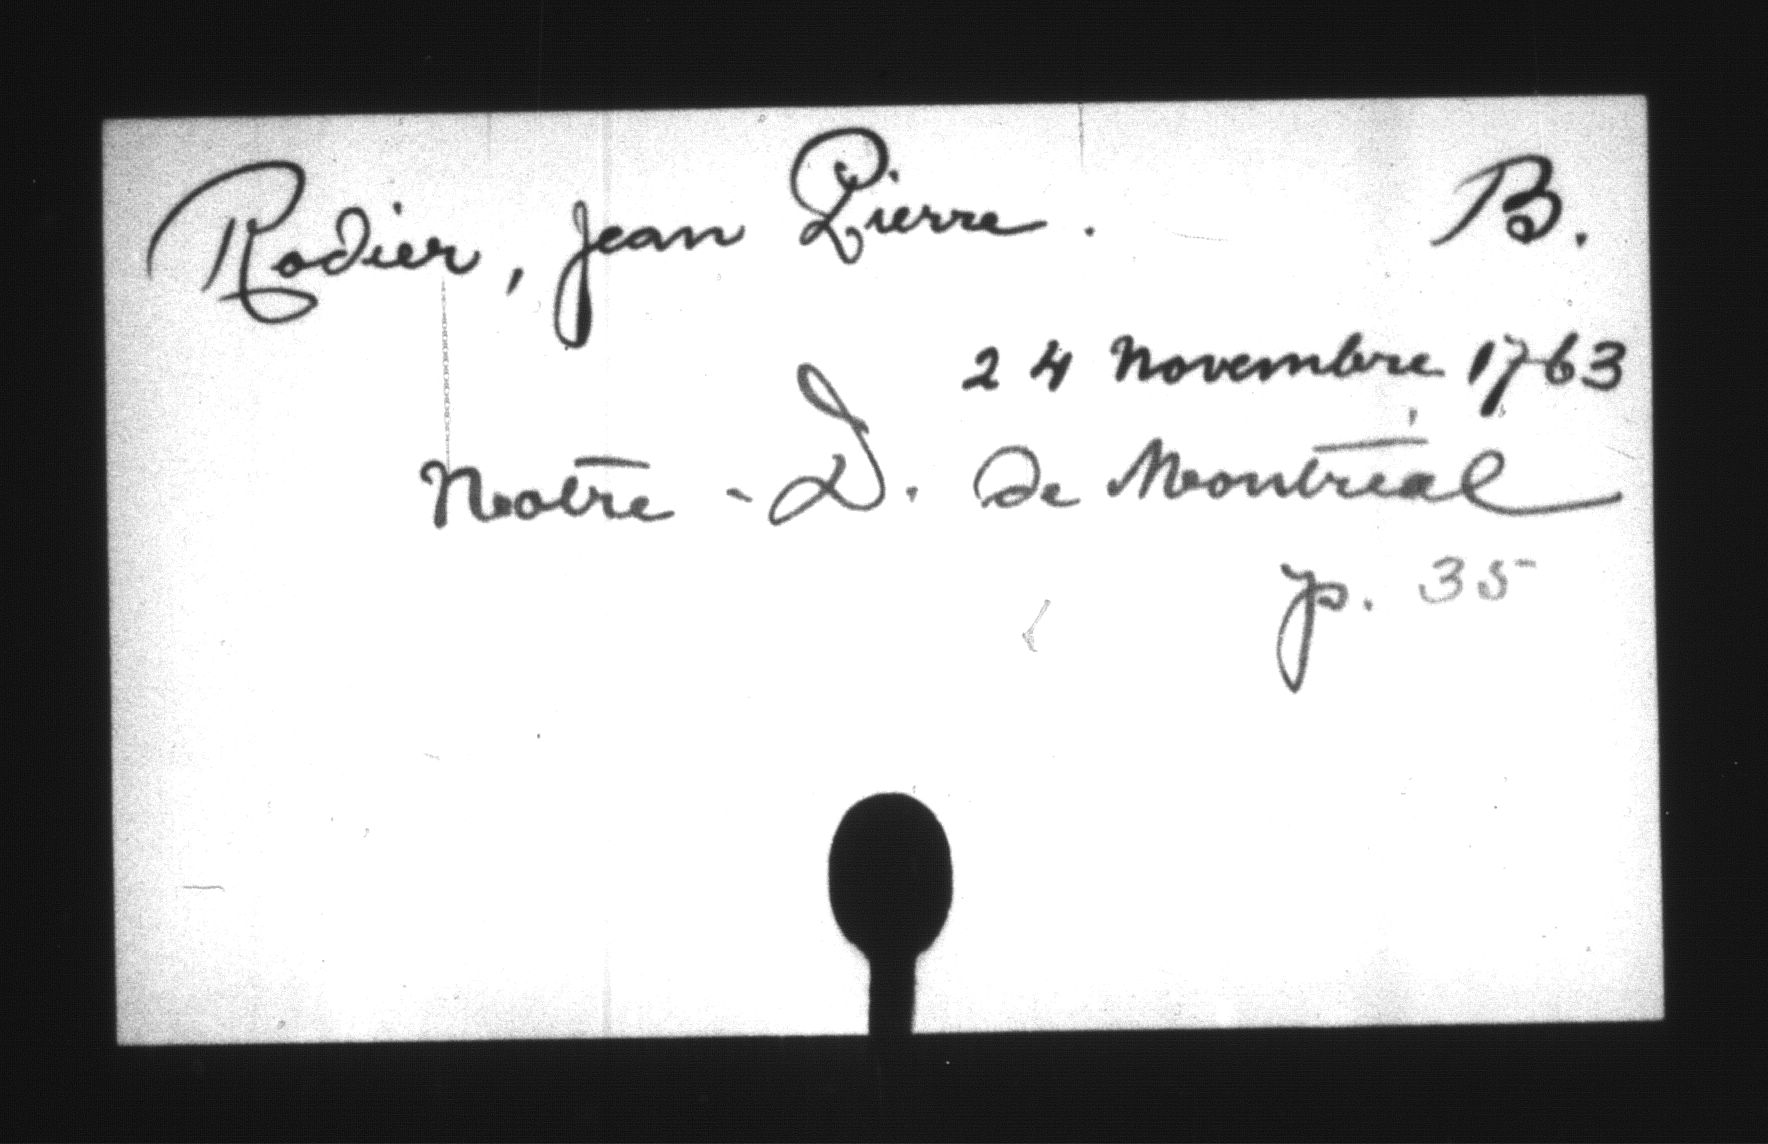 Rodier, Jean Pierre. B.
24 Novembre 1763
Notre-D. de Montréal
p. 35